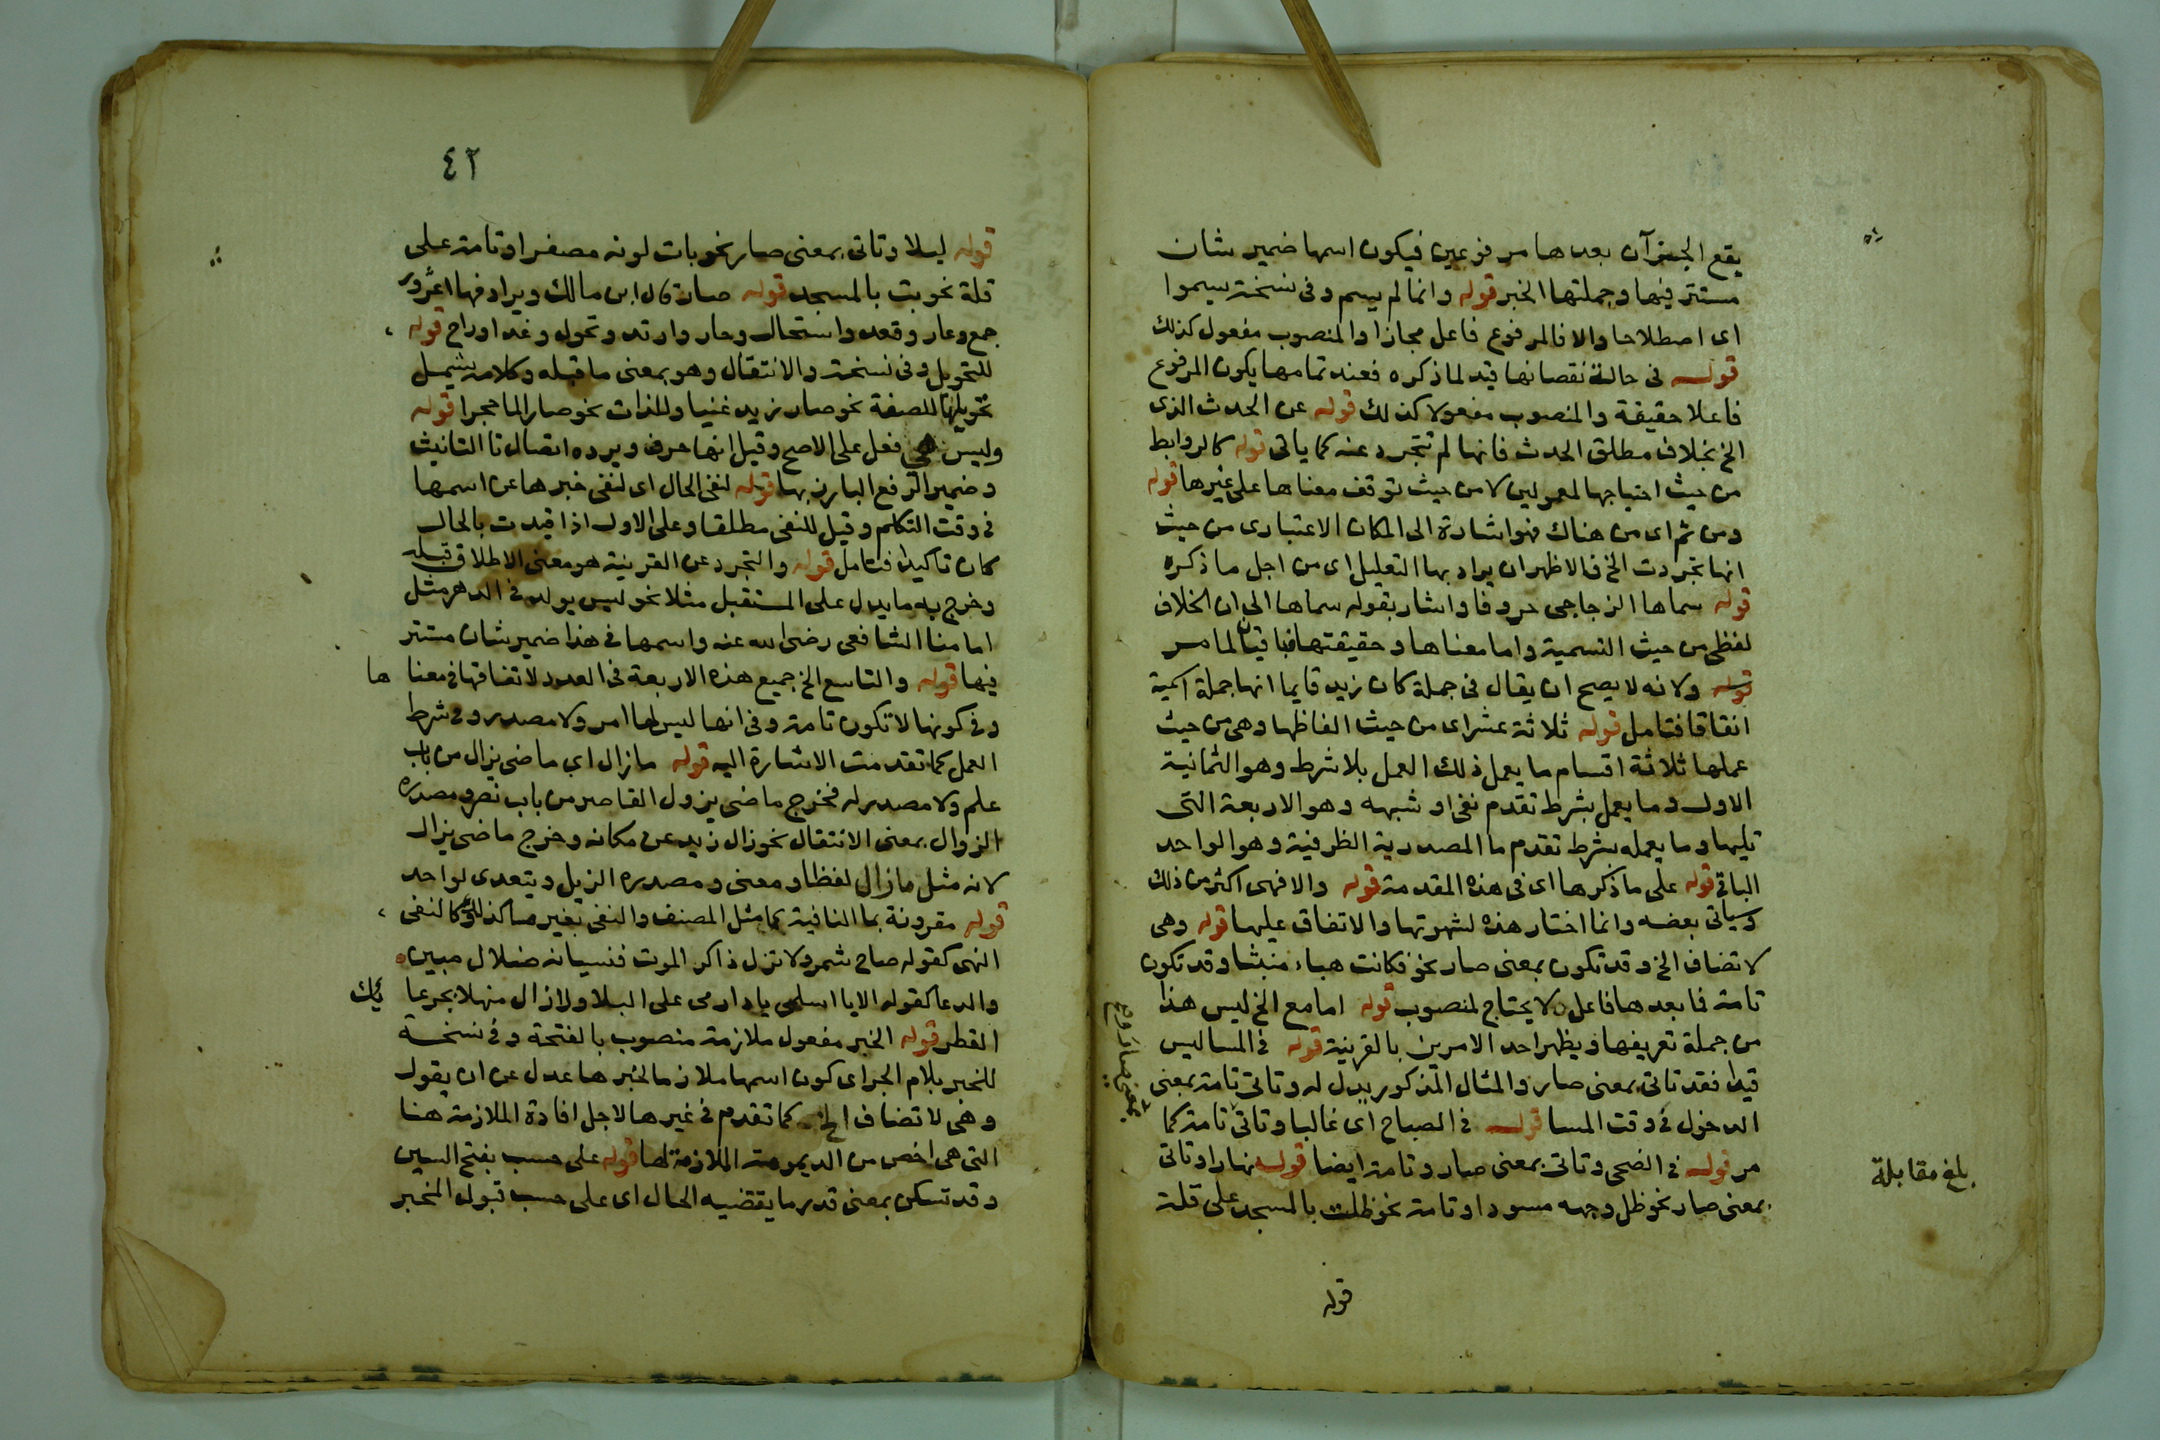 يقع الجزآن بعدها مرفوعين فيكون اسمها ضمير شان
مستتر فيها وجملتها الخبر قوله وانما لم يسم وفى نسخة يسموا
اى اصطلاحا والا فالمرفوع فاعل مجازا والمنصوب مفعول كذلك
قوله فى حالة نقصانها قيد لما ذكره فعند تمامها يكون المرفوع
فاعلا حقيقة والمنصوب مفعولا كذلك قوله عن الحدث الذى
الخ بخلاف مطلق الحدث فانها لم تتجرد عنه كما ياتى قوله كالروابط
من حيث احتياجها لمعمولين لا من حيث توقف معناها على غيرها قوله
ومن ثم اى من هناك فهو اشارة الى المكان الاعتبارى من حيث
انها تجردت الخ فالاظهر ان يراد بها التعليل اى من اجل ما ذكره
قوله سماها الزجاجى حروفا واشار بقوله سماها الى ان الخلاف
لفظى من حيث التسمية واما معناها وحقيقتها فباقيتان لما مر
قوله ولانه لا يصح ان يقال فى جملة كان زيد قايما انها جملة اسمية
اتفاقا فتامل قوله ثلاثة عشر اى من حيث الفاظها وهى من حيث
عملها ثلاثة اقسام ما يعمل ذلك العمل بلا شرط وهو الثمانية
الاول وما يعمل بشرط تقدم نفى او شبهه وهو الاربعة التى
تليها وما يعمله بشرط تقدم ما المصدرية الظرفية وهو الواحد
الباقى قوله على ما ذكرها اى فى هذه المقدمة قوله والا فهى اكثر من ذلك
وسياتى بعضه وانما اختار هذه لشهرتها والاتفاق عليها قوله وهى
لا تضاف الخ وقد تكون بمعنى صار نحو فكانت هباء منبثا وقد تكون
تامة فما بعدها فاعل ولا يحتاج لمنصوب قوله اما مع الخ ليس هذا
من جملة تعريفها ويظهر احد الامرين بالقرينة قوله فى المسا ليس
قيدا فقد تاتى بمعنى صار والمثال المذكور يدل له وتاتى تامة بمعنى
الدخول فى وقت المسا قوله فى الصباح اى غالبا وتاتى تامة كما
مر قوله فى الضحى وتاتى بمعنى صار وتامة ايضا قوله نهارا وتاتى
بمعنى صار نحو ظل وجهه مسودا وتامة نحو ظلت بالمسجد على قلة
بلغ مقابلة
قوله
٤٢
قوله ليلا وتاتى بمعنى صار نحو بات لونه مصفرا وتامة على
قلة نحو بت بالمسجد قوله صار قال ابن مالك ويرادفها
رجع وعار وقعد واستحال وحار وارتد وتحول وغدا وراح قوله
للتحويل وفى نسخة والانتقال وهو بمعنى ما قبله وكلامه يشمل
تحويلها للصفة نحو صار زيد غنيا وللذات نحو صار الما حجرا قوله
وليس هى فعل على الاصح وقيل انها حرف ويرده اتصال تا التانيث
وضمير الرفع البارز بها قوله لنفى الحال اى لنفى خبرها عن اسمها
فى وقت التكلم وقيل للنفى مطلقا وعلى الاول اذا قيدت بالحال
كان تاكيدا فتامل قوله والتجرد عن القرينة هو معنى الاطلاق قبله
وخرج به ما يدل على المستقبل مثلا نحو ليس يولد فى الدهر مثل
امامنا الشافعى رضى الله عنه واسمها فى هذا ضمير شان مستتر
فيها قوله والتاسع الخ جمع هذه الاربعة فى العدد لاتفاقها فى معناها
وفى كونها لا تكون تامة وفى انها ليس لها امر ولا مصدر وفى شرط
العمل كما تقدمت الاشارة اليه قوله ما زال اى ماضى يزال من باب
علم ولا مصدر له فخرج ماضى يزول القاصر من باب نصر ومصدره
الزوال بمعنى الانتقال نحو زال زيد عن مكانه وخرج ماضى يزال
لانه مثل ما زال لفظا ومعنى ومصدره الزيل ويتعدى لواحد
قوله مقرونة بما النافية كما مثل المصنف والنفى بغير ما كذلك وكالنفى
النهى كقوله صاح شمر ولا تزل ذاكر الموت فنسيانه ضلال مبين
والدعا كقوله الا يا اسلمى يا دار مى على البلا ولا زال منهلا بجرعائك
القطر قوله الخبر مفعول ملازمة منصوب بالفتحة وفى نسخة
للخبر بلام الجر اى كون اسمها ملازما لخبرها عدل عن ان يقول
وهى لا تضاف الخ كما تقدم فى غيرها لاجل افادة الملازمة هنا
التى هى اخص من الديمومة الملازمة لها قوله على حسب بفتح السين
وقد تسكن بمعنى قدر ما يقتضيه الحال اى على حسب قبول المخبر